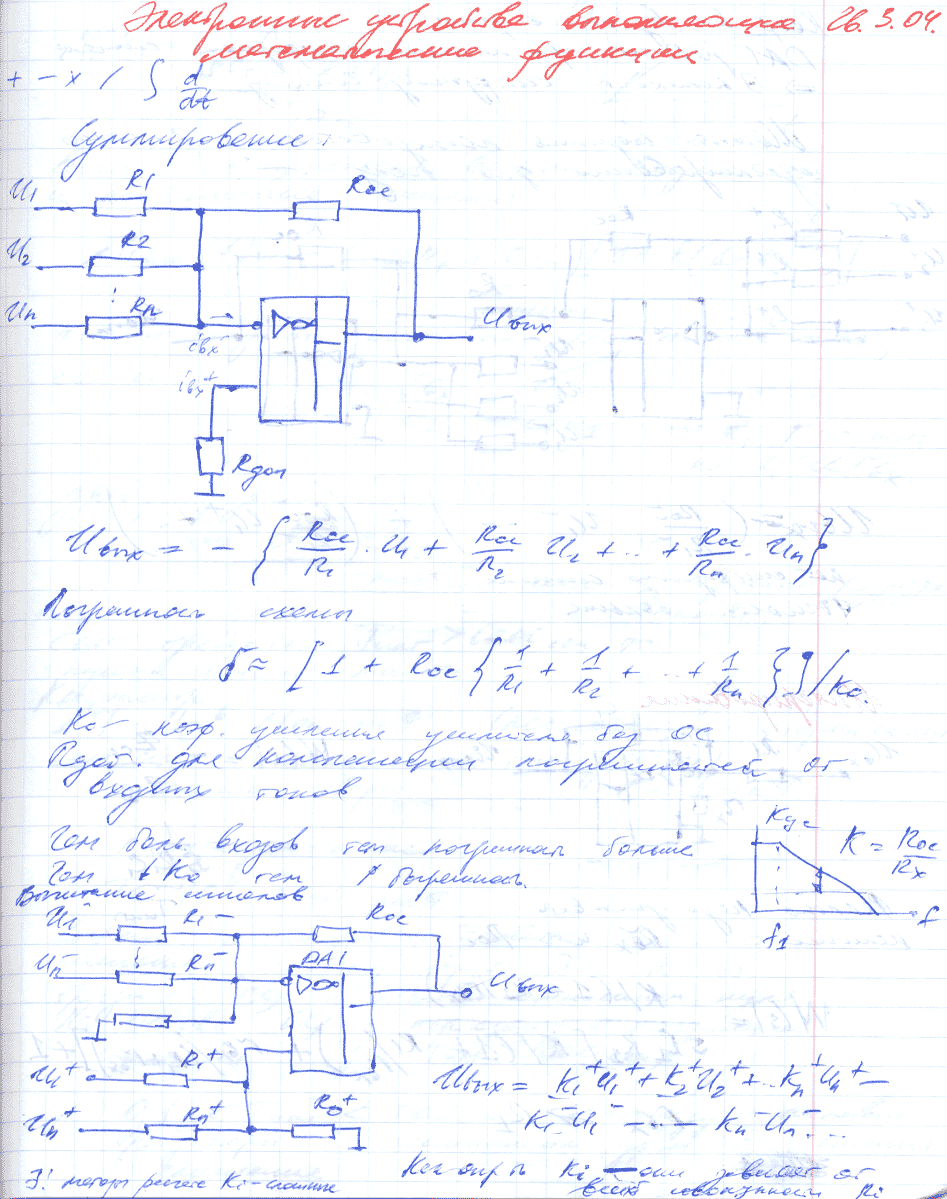 Электронные устройства выполняющие 26.3.04.
математические функции
+ − × / ∫ d/dt
Суммирование:
U1 R1 Rос
U2 R2
Un Rn Uвых
iвх⁻
iвх⁺
Rдоп
Uвых = − { Rос/R1 · U1 + Rос/R2 U2 + ... + Rос/Rn · Un }
Погрешность схемы
δ ≈ [ 1 + Rос { 1/R1 + 1/R2 + ... + 1/Rn } ] / K0.
K0 − коэф. усиления усилителя без ОС
Rдоп. для компенсации погрешностей от
входных токов
Чем боль. входов тем погрешность больше
Чем ↓ K0 тем ↑ погрешность.
Kус K = Rос/Rx
f1 f
Вычитание сигналов
U1⁻ R1⁻ Rос
Un⁻ Rn⁻ DA1 Uвых
U1⁺ R1⁺
Un⁺ Rn⁺ R0⁺
Uвых = K1⁺U1⁺ + K2⁺U2⁺ + ... Kn⁺Un⁺ −
K1⁻U1⁻ − ... − Kn⁻Un⁻ ...
Ki − они зависят от
всей совокупности Ri
∃! методы расчёта Ki − сложные